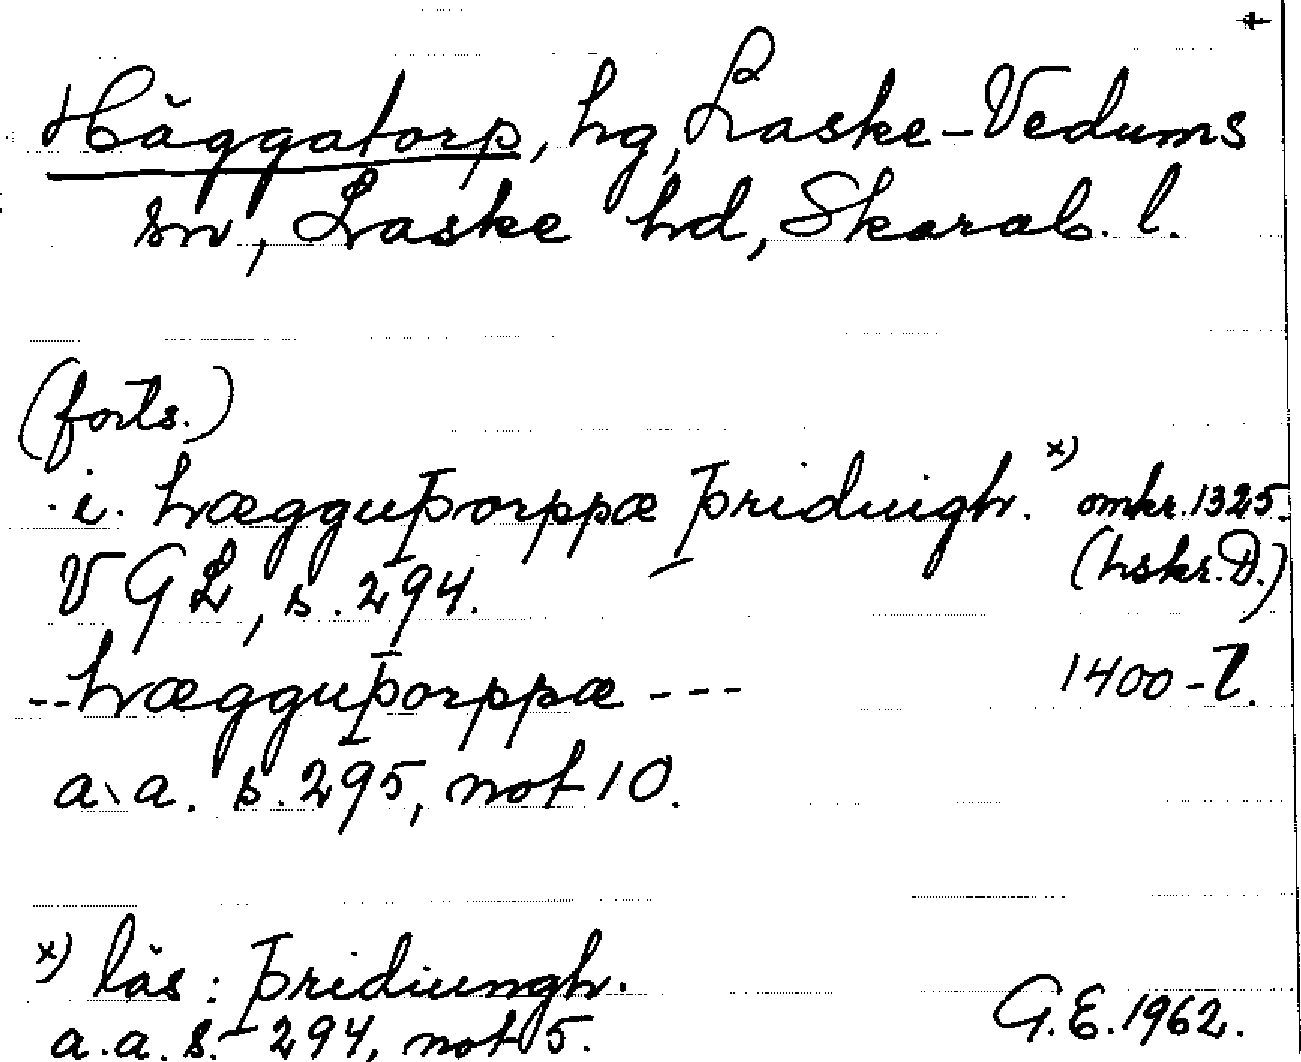 +
Häggatorp, hg, Laske-Vedums
sn, Laske hd, Skarab. l.
(forts.)
.i. hægguþorppæ þriduigh. x) omkr. 1325.
VGL, s. 294. (hskr. D.)
--hægguþorppæ --- 1400-t.
a.a. s. 295, not 10.
x) läs: þridiungh.
a.a. s. 294, not 5. G.E. 1962.